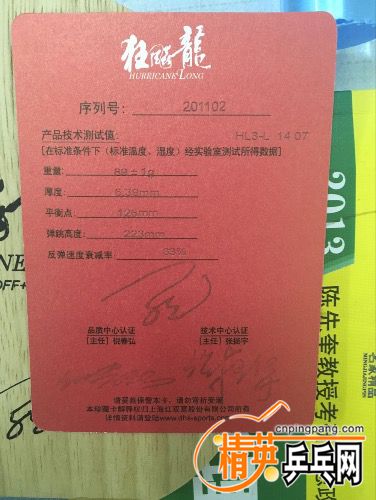 狂飚龍
HURRICANE LONG
序列号：201102
产品技术测试值：HL3-L 14 07
[在标准条件下（标准温度、湿度）经实验室测试所得数据]
重量：89±1g
厚度：
平衡点：126mm
弹跳高度：223mm
反弹速度衰减率：
品质中心认证 技术中心认证
[主任] 倪春弘 [主任] 张振宇
请妥善保管本卡，请勿弯折受潮
本珍藏卡解释权归上海红双喜股份有限公司所有
详情资料请登陆www.dhs-sports.com
2013
陈先奎教授考
名家精品
OFF+
cnpingpang.com
精英乒乓网